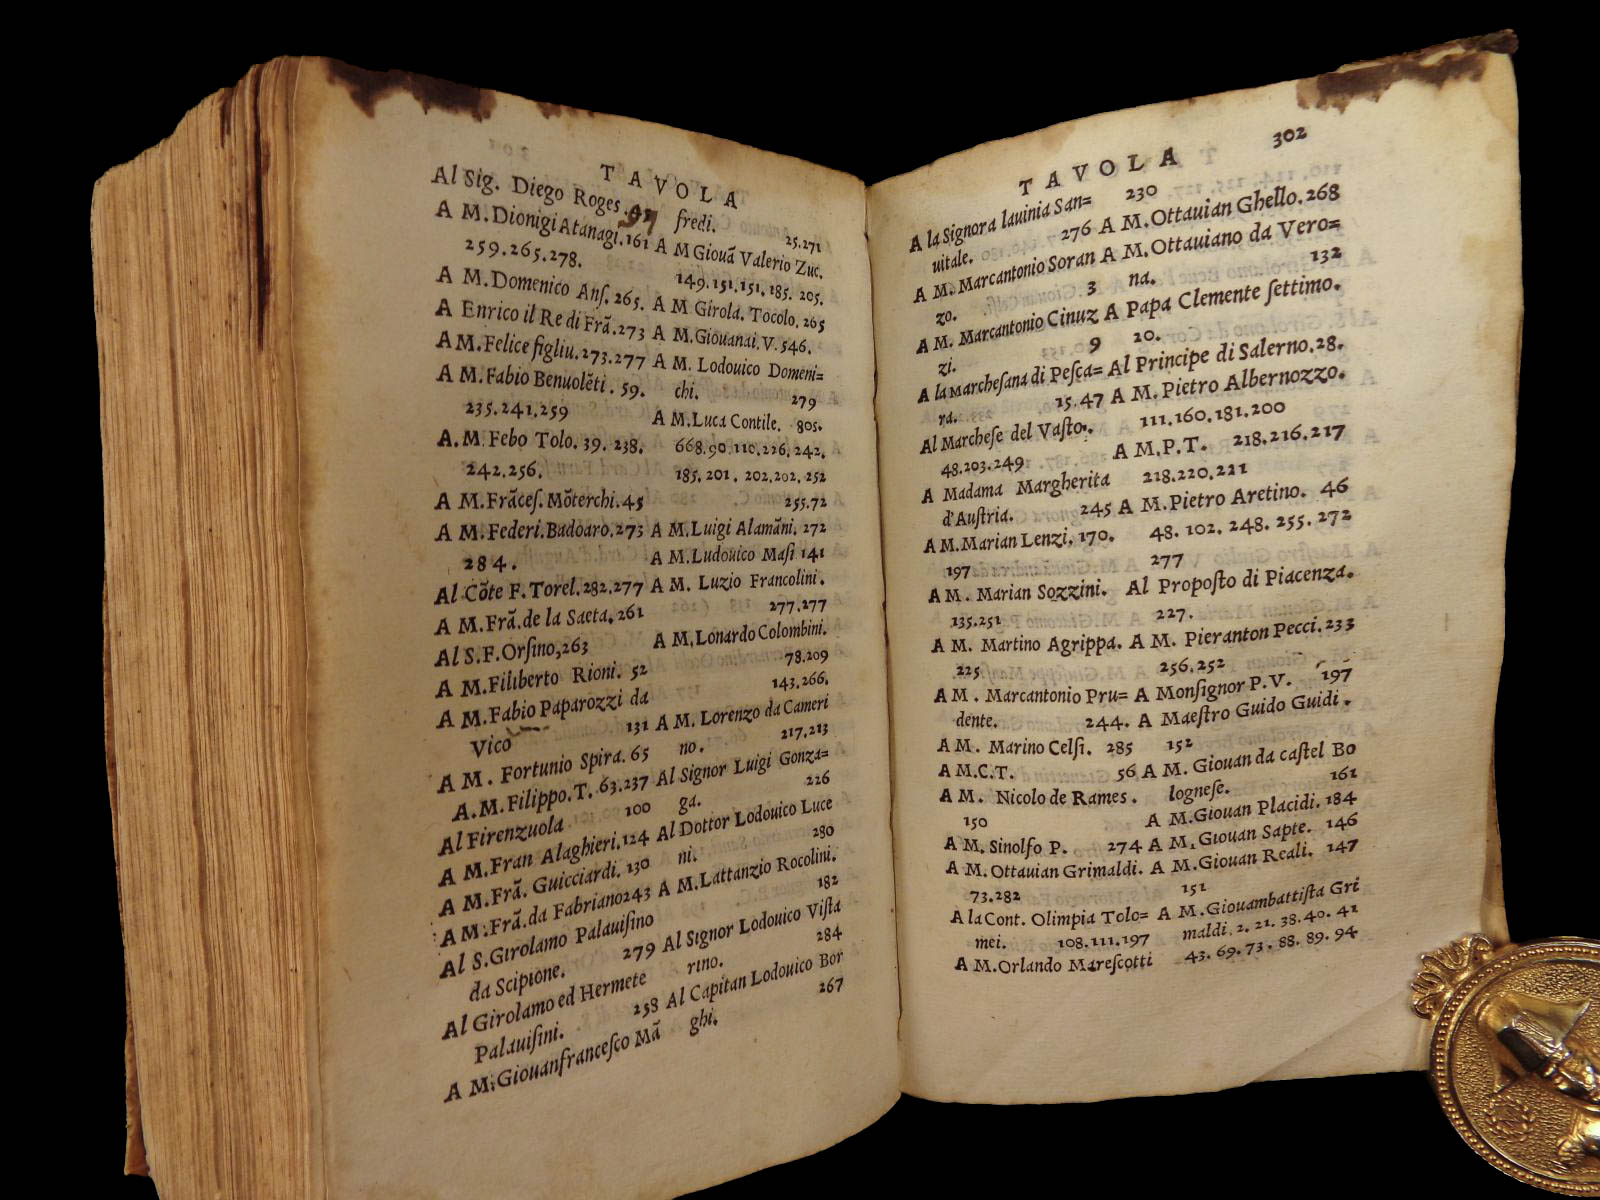 TAVOLA
Al Sig. Diego Roges. 97
A M.Dionigi Atanagi.161
259.265.278.
A M.Domenico Anſ. 265.
A Enrico il Re di Frã.273
A M.Felice figliu.273.277
A M.Fabio Benuolẽti . 59.
235.241.259
A.M.Febo Tolo. 39. 238.
242.256.
A M.Frãceſ. Mõterchi.45
A M.Federi.Badoaro.273
284.
Al Cõte F.Torel.282.277
A M.Frã.de la Saeta.261
Al S.F.Orſino,263
A M.Filiberto Rioni. 52
A M.Fabio Paparozzi da
Vico 131
A M. Fortunio Spira. 65
A.M.Filippo.T. 63.237
Al Firenzuola 100
A M.Fran Alaghieri.124
A M.Frã. Guicciardi. 130
A M.Frã.da Fabriano243
Al S.Girolamo Palauiſino
da Scipione. 279
Al Girolamo ed Hermete
Palauiſini. 258
A M.Giouanfranceſco Mã
fredi. 25.271
A M Giouã Valerio Zuc.
149.151.151.185.205.
A M Girola. Tocolo. 265
A M.Giouanai.V.546.
A M. Lodouico Domeni=
chi. 279
A M.Luca Contile. 805.
668.90.110.226.242.
185.201.202.202.252
255.72
A M.Luigi Alamãni. 272
A M.Ludouico Maſi 141
A M. Luzio Francolini.
277.277
A M.Lonardo Colombini.
78.209
143.266.
A M. Lorenzo da Cameri
no. 217.213
Al Signor Luigi Gonza=
ga. 226
Al Dottor Lodouico Luce
ni. 280
A M.Lattanzio Rocolini.
182
Al Signor Lodouico Viſta
rino. 284
Al Capitan Lodouico Bor
ghi. 267
TAVOLA 302
A la Signora lauinia San=
uitale. 276
A M. Marcantonio Soran
zo. 3
A M. Marcantonio Cinuz
zi. 9
A la Marcheſana di Peſca=
ra. 15.47
Al Marcheſe del Vaſto.
48.203.249
A Madama Margherita
d'Auſtria. 245
A M.Marian Lenzi. 170.
197
A M. Marian Sozzini.
135.251
A M. Martino Agrippa.
225
A M . Marcantonio Pru=
dente. 244.
A M. Marino Celſi. 285
A M.C.T. 56
A M. Nicolo de Rames .
150
A M. Sinolfo P. 274
A M.Ottauian Grimaldi.
73.282
A la Cont. Olimpia Tolo=
mei. 108.111.197
A M.Orlando Mareſcotti
230
A M.Ottauian Ghello.268
A M.Ottauiano da Vero=
na. 132
A Papa Clemente ſettimo.
20.
Al Principe di Salerno.28.
A M. Pietro Albernozzo.
111.160.181.200
A M.P.T. 218.216.217
218.220.221
A M.Pietro Aretino. 46
48. 102. 248. 255. 272
277
Al Propoſto di Piacenza.
227.
A M. Pieranton Pecci.233
256.252
A Monſignor P.V. 197
A Maeſtro Guido Guidi .
152
A M. Giouan da caſtel Bo
logneſe. 161
A M.Giouan Placidi. 184
A M.Giouan Sapte. 146
A M.Giouan Reali. 147
151
A M.Giouambattiſta Gri
maldi. 2. 21. 38. 40. 41
43. 69. 73. 88. 89. 94